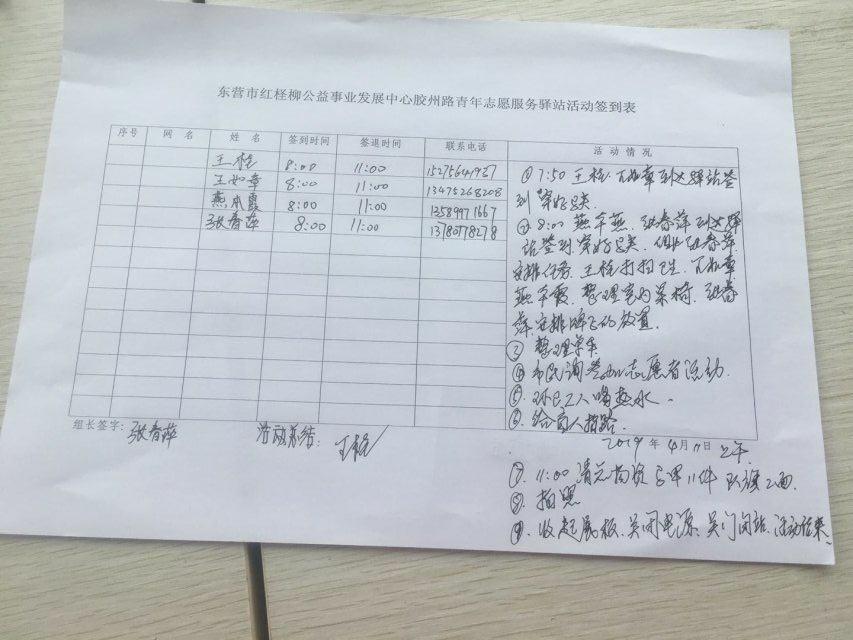 东营市红柽柳公益事业发展中心胶州路青年志愿服务驿站活动签到表
序号 网 名 姓 名 签到时间 签退时间 联系电话 活 动 情 况
王柽 8:00 11:00
王如章 8:00 11:00 13475268208
燕 霞 8:00 11:00
张春萍 8:00 11:00 13780778278
① 7:50 王柽 到达驿站签
到 穿好马夹
② 8:00 燕 张春萍 到达驿
站签到 穿好马夹 张春萍
安排任务 王柽打扫卫生
燕 霞 整理室内桌椅 张春
萍安排牌子的放置
③ 整理单车
④ 市民调查 志愿者活动
⑤ 环卫工人喝热水
⑥ 给商人指路
组长签字: 张春萍 活动总结: 王柽
2019 年 4 月 11 日 上午
⑦ 11:00 清点物资 马甲11件 队旗2面
⑧ 拍照
⑨ 收起展板 关闭电源 关门闭站 活动结束